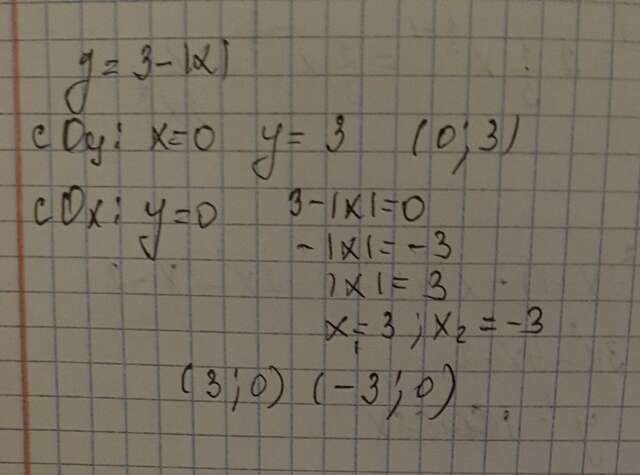 y = 3 - |x|
c Oy: x=0 y = 3 (0; 3)
c Ox: y=0 3-|x|=0
-|x|= -3
|x|= 3
x₁=3; x₂ = -3
(3; 0) (-3; 0)